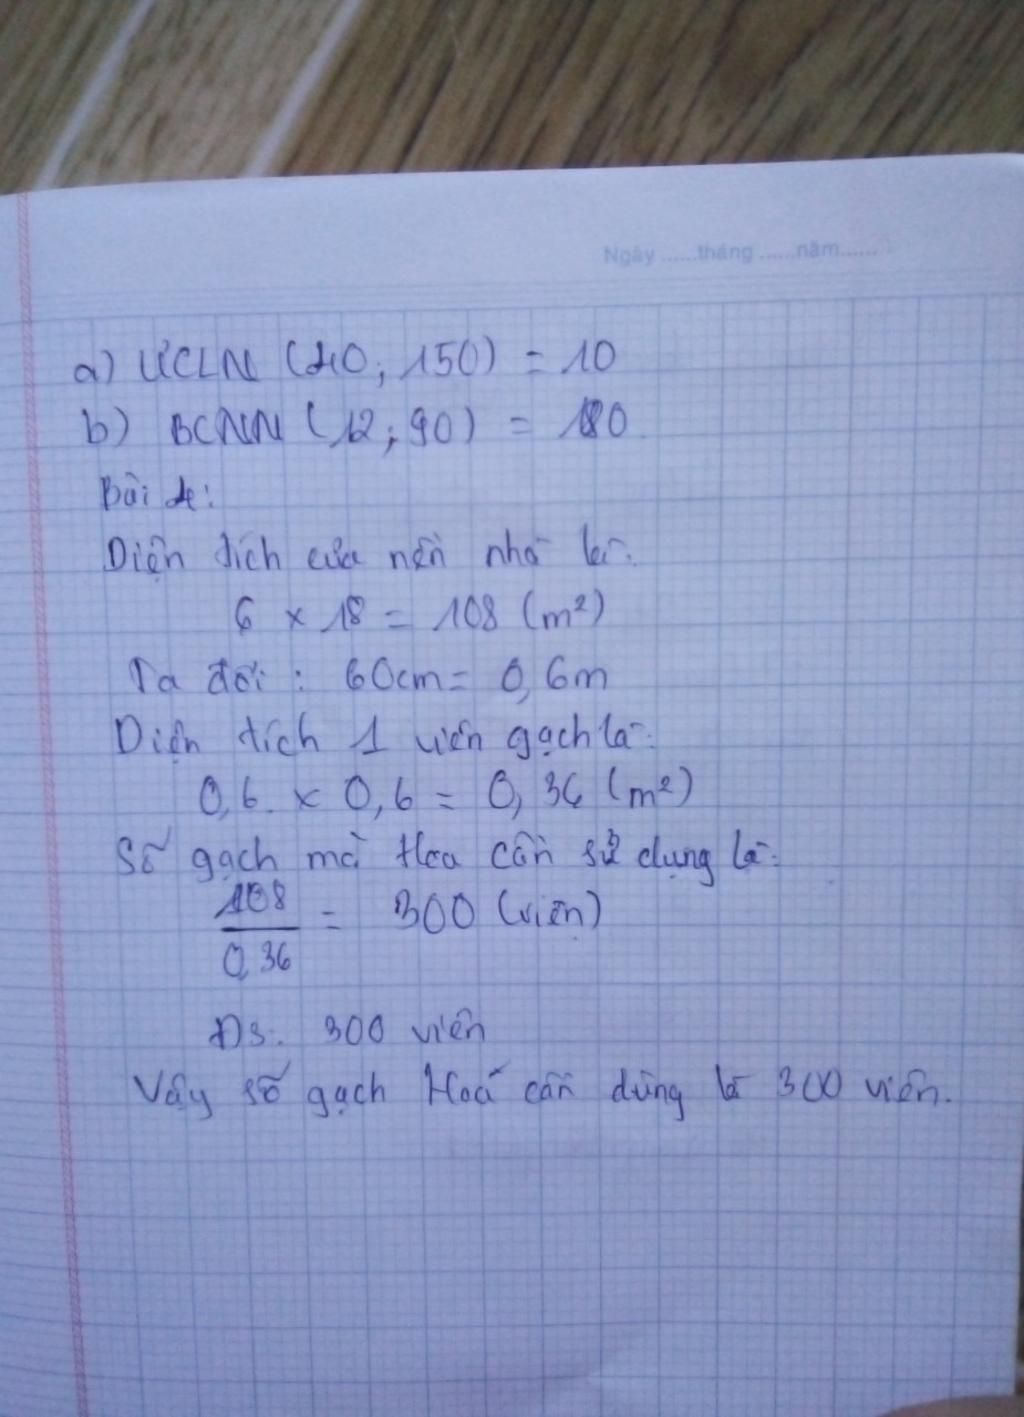 Ngày ......tháng ......năm......
a) ƯCLN (40; 150) = 10
b) BCNN (12; 90) = 180
Bài 4:
Diện tích của nền nhà là:
6 x 18 = 108 (m²)
Ta đổi : 60cm = 0,6m
Diện tích 1 viên gạch là:
0,6 x 0,6 = 0,36 (m²)
Số gạch mà Hoa cần sử dụng là:
108
= 300 (viên)
0,36
Đs: 300 viên
Vậy số gạch Hoa cần dùng là 300 viên.